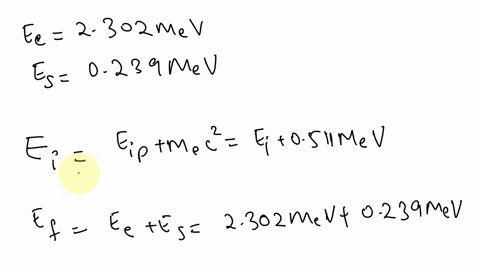 E_e = 2.302 MeV
E_s = 0.239 MeV
E_i = E_ip + m_e c² = E_i + 0.511 MeV
E_f = E_e + E_s = 2.302 MeV + 0.239 MeV